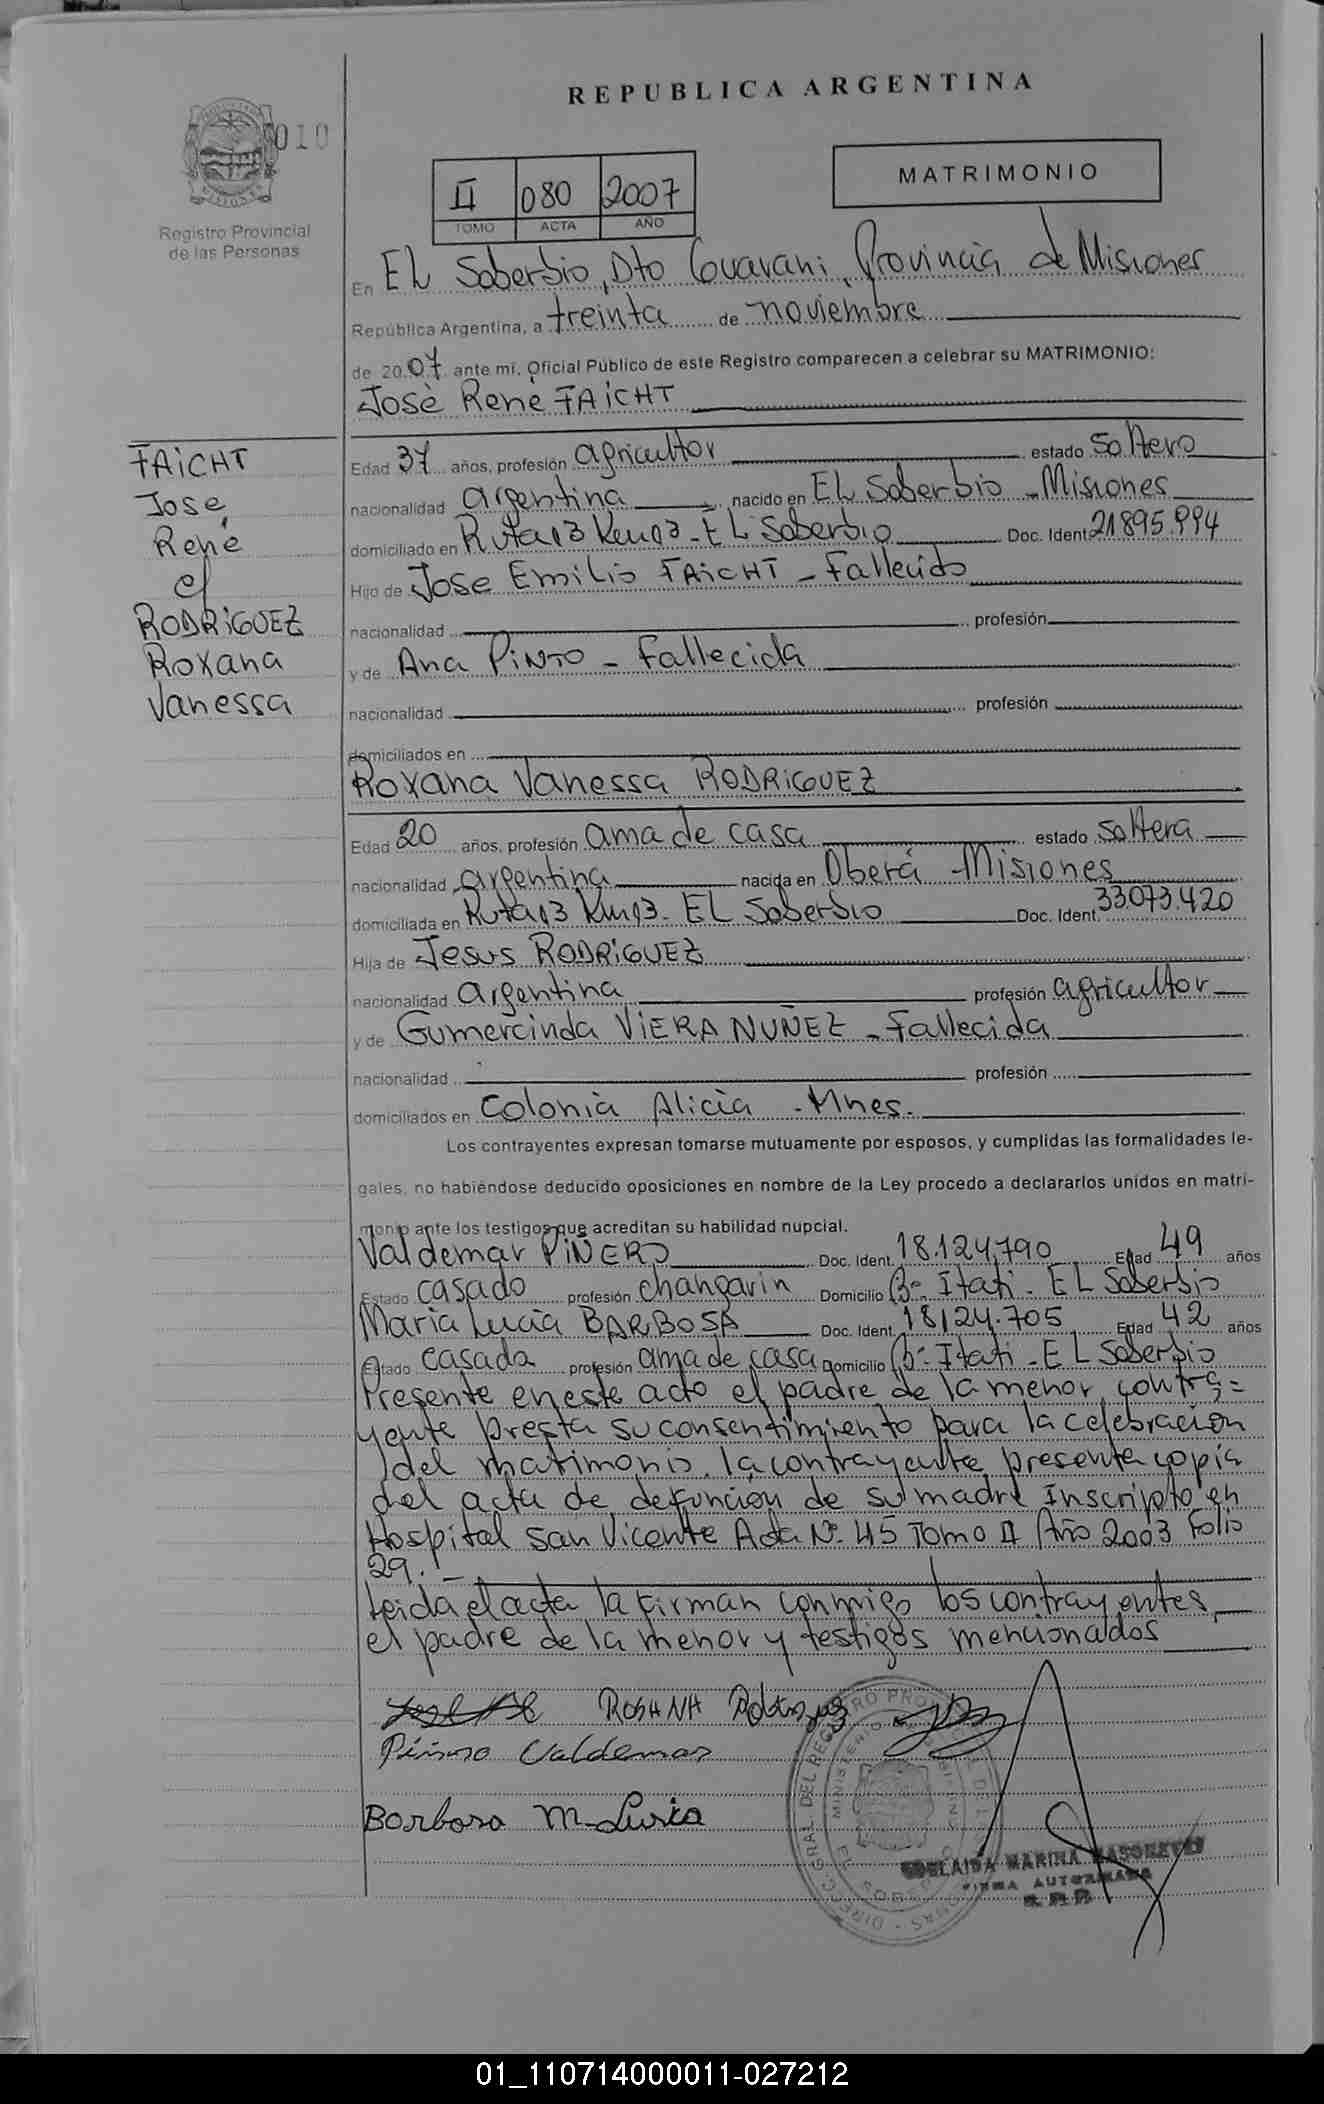 REPUBLICA ARGENTINA
010
Registro Provincial
de las Personas
II 080 2007
TOMO ACTA AÑO
MATRIMONIO
En EL Soberbio, Dto Guarani, Provincia de Misiones
República Argentina, a treinta de noviembre
de 2007 ante mí, Oficial Público de este Registro comparecen a celebrar su MATRIMONIO:
Josè Renè FAiCHT
FAiCHT
Jose
René
c/
RODRiGUEZ
Roxana
Vanessa
Edad 37 años, profesión agricultor estado Soltero
nacionalidad argentina nacido en EL Soberbio - Misiones
domiciliado en Ruta 13 Km 13 - EL Soberbio Doc. Ident. 21895.994
Hijo de Jose Emilio FAiCHT - Fallecido
nacionalidad profesión
y de Ana PiNTO - Fallecida
nacionalidad profesión
domiciliados en
Roxana Vanessa RODRiGUEZ
Edad 20 años, profesión ama de casa estado soltera
nacionalidad argentina nacida en Oberá - Misiones
domiciliada en Ruta 13 Km 13 - EL Soberbio Doc. Ident. 33.073.420
Hija de Jesus RODRiGUEZ
nacionalidad argentina profesión agricultor
y de Gumercinda ViERA NUÑEZ - Fallecida
nacionalidad profesión
domiciliados en Colonia Alicia - Mnes.
Los contrayentes expresan tomarse mutuamente por esposos, y cumplidas las formalidades le-
gales, no habiéndose deducido oposiciones en nombre de la Ley procedo a declararlos unidos en matri-
monio ante los testigos que acreditan su habilidad nupcial.
Valdemar PiÑERO Doc. Ident. 18.124.790 Edad 49 años
Estado casado profesión changarin Domicilio Bº Itati - EL Soberbio
Maria Lucia BARBOSA Doc. Ident. 18124.705 Edad 42 años
Estado casada profesión ama de casa Domicilio Bº Itati - EL Soberbio
Presente en este acto el padre de la menor contra=
yente presta su consentimiento para la celebracion
del matimonio, la contrayente presenta copia
del acta de defuncion de su madre Inscripto en
Hospital San Vicente Acta Nº 45 Tomo II Año 2003 Folio
29. -
Leida el acta la firman conmigo los contrayentes,
el padre de la menor y testigos mencionados
ROSANA Rodriguez
Piñero Valdemar
Barbosa M. Lucia
DIREC. GRAL. DEL REGISTRO PROVINCIAL DE LAS PERSONAS
MINISTERIO DE GOBIERNO
EL SOBERBIO
MARINA
FIRMA AUTORIZADA
R.P.P.
01_110714000011-027212